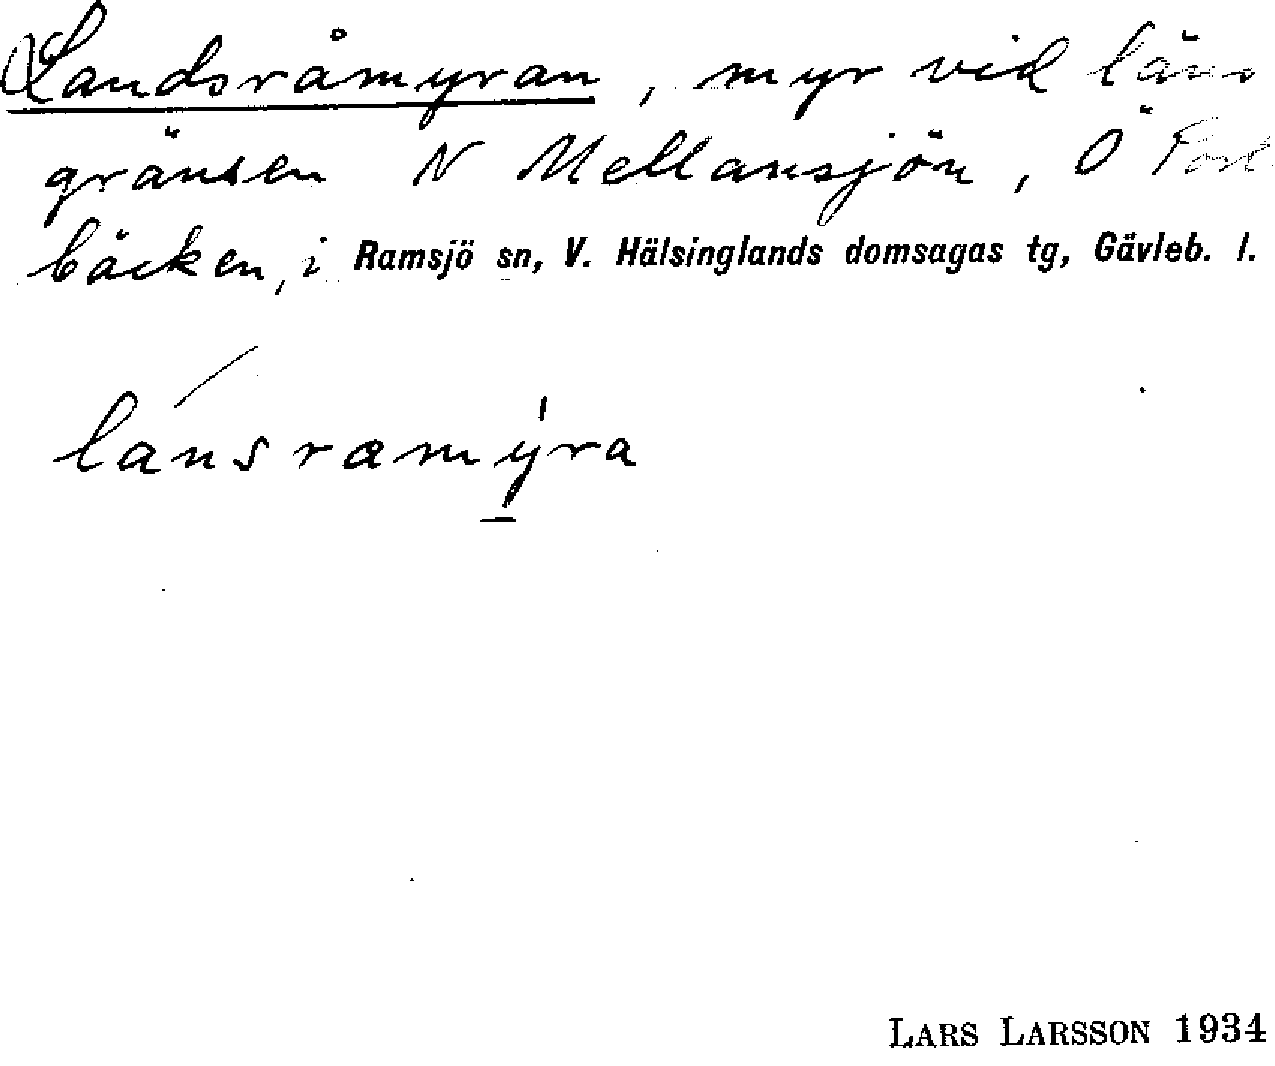 Landsråmyran, myr vid läns
gränsen N Mellansjön, Ö
bäcken, i Ramsjö sn, V. Hälsinglands domsagas tg, Gävleb. l.
lánsramýra
LARS LARSSON 1934